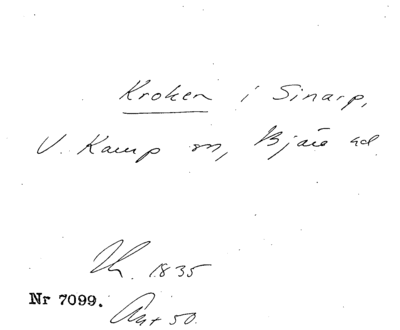 Kroken i Sinarp,
V. Karup sn, Bjäre hd
1835
Nr 7099.
50.